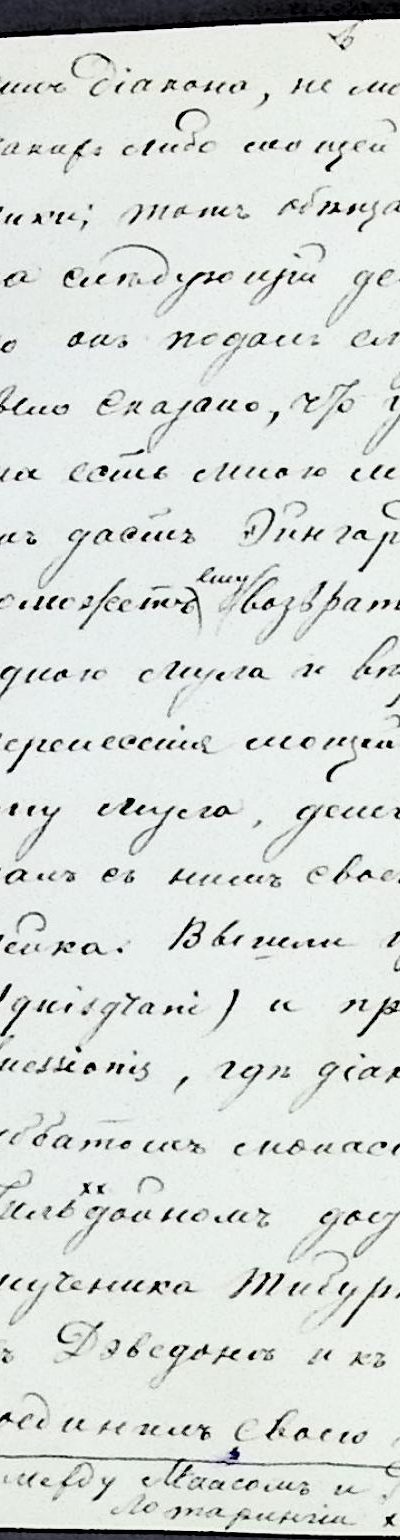 діакона, не мо
либо мощей
тотъ обѣща
а слѣдующій де
о онъ подалъ ем
было сказано, что у
на есть много м
дастъ Эйнгар
поможетъ ему возврат
одного мула и вп
перенесенія мощей
му мула, денег
алъ съ нимъ свое
ейка. Вышли
(quisgrani) и пр
uessionis, гдѣ діак
аббатомъ монаст
Гильдойномъ дог
мученика Тибур
ъ Дэведонъ и къ
оединилъ своею
между Маасомъ и
Лотарингіи x